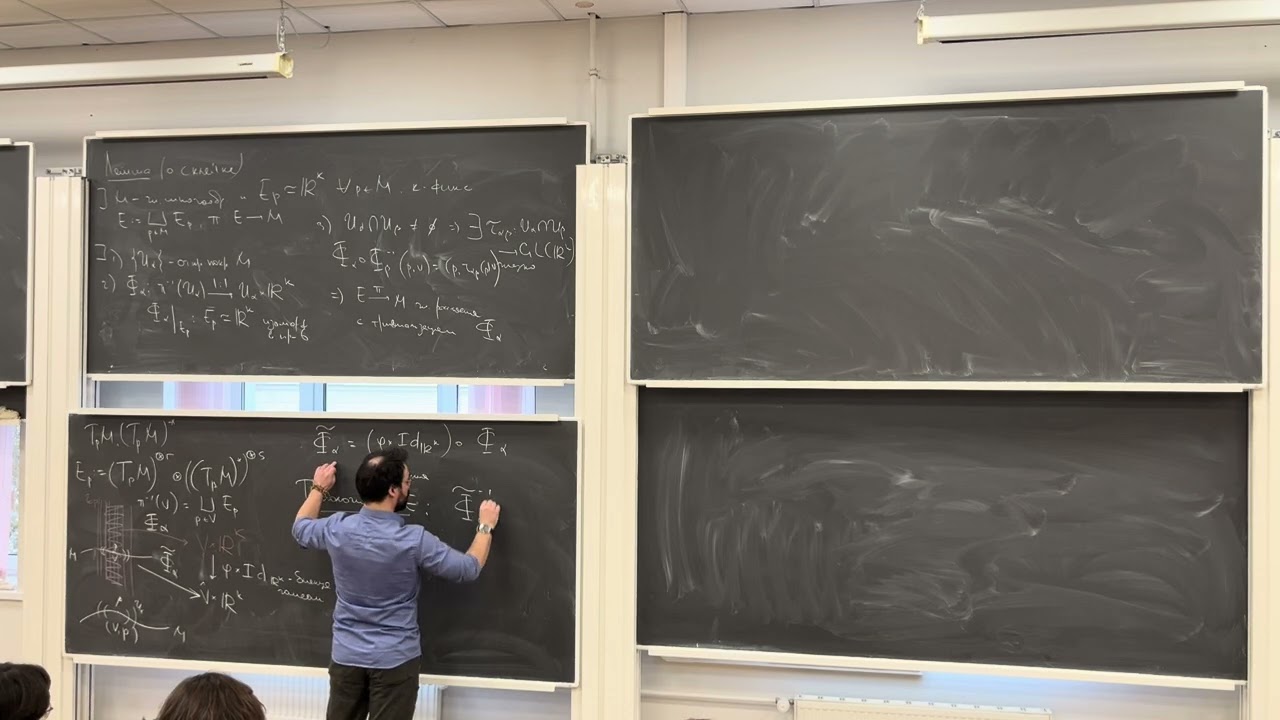 Лемма (о склейке)
∃ M - гл. многообр и E_p ≃ ℝ^k ∀p∈M, k-фикс
E := ⊔_{p∈M} E_p, π: E → M
∃ 1) {U_α} - откр покр M
2) Φ_α: π⁻¹(U_α) →^{1:1} U_α × ℝ^k
Φ_α|_{E_p}: E_p ≃ ℝ^k изоморф
3) U_α ∩ U_β ≠ ∅ ⇒ ∃ τ_{αβ}: U_α ∩ U_β
→ GL(ℝ^k)
Φ_α ∘ Φ_β⁻¹ (p,v) = (p, τ_{αβ}(p)v) гладко
⇒ E →^π M гл. расслоение
с тривиализацией Φ_α
T_pM, (T_pM)^*
E_p := (T_pM)^{⊗r} ⊗ ((T_pM)^*)^{⊗s}
π⁻¹(V) = ⊔_{p∈V} E_p
Φ_α
M
Φ̃_α
V × ℝ^k
↓ φ × Id_{ℝ^k} -
V̂ × ℝ^k
φ
(V, φ)
M
Φ̃_α = (φ × Id_{ℝ^k}) ∘ Φ_α
E:
Φ̃⁻¹